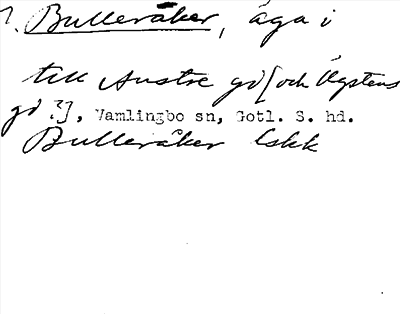 1. Bulleråker, äga i
till Austre gd [och Ägstens
gd ?], Vamlingbo sn, Gotl. S. hd.
Bulleråker lskk